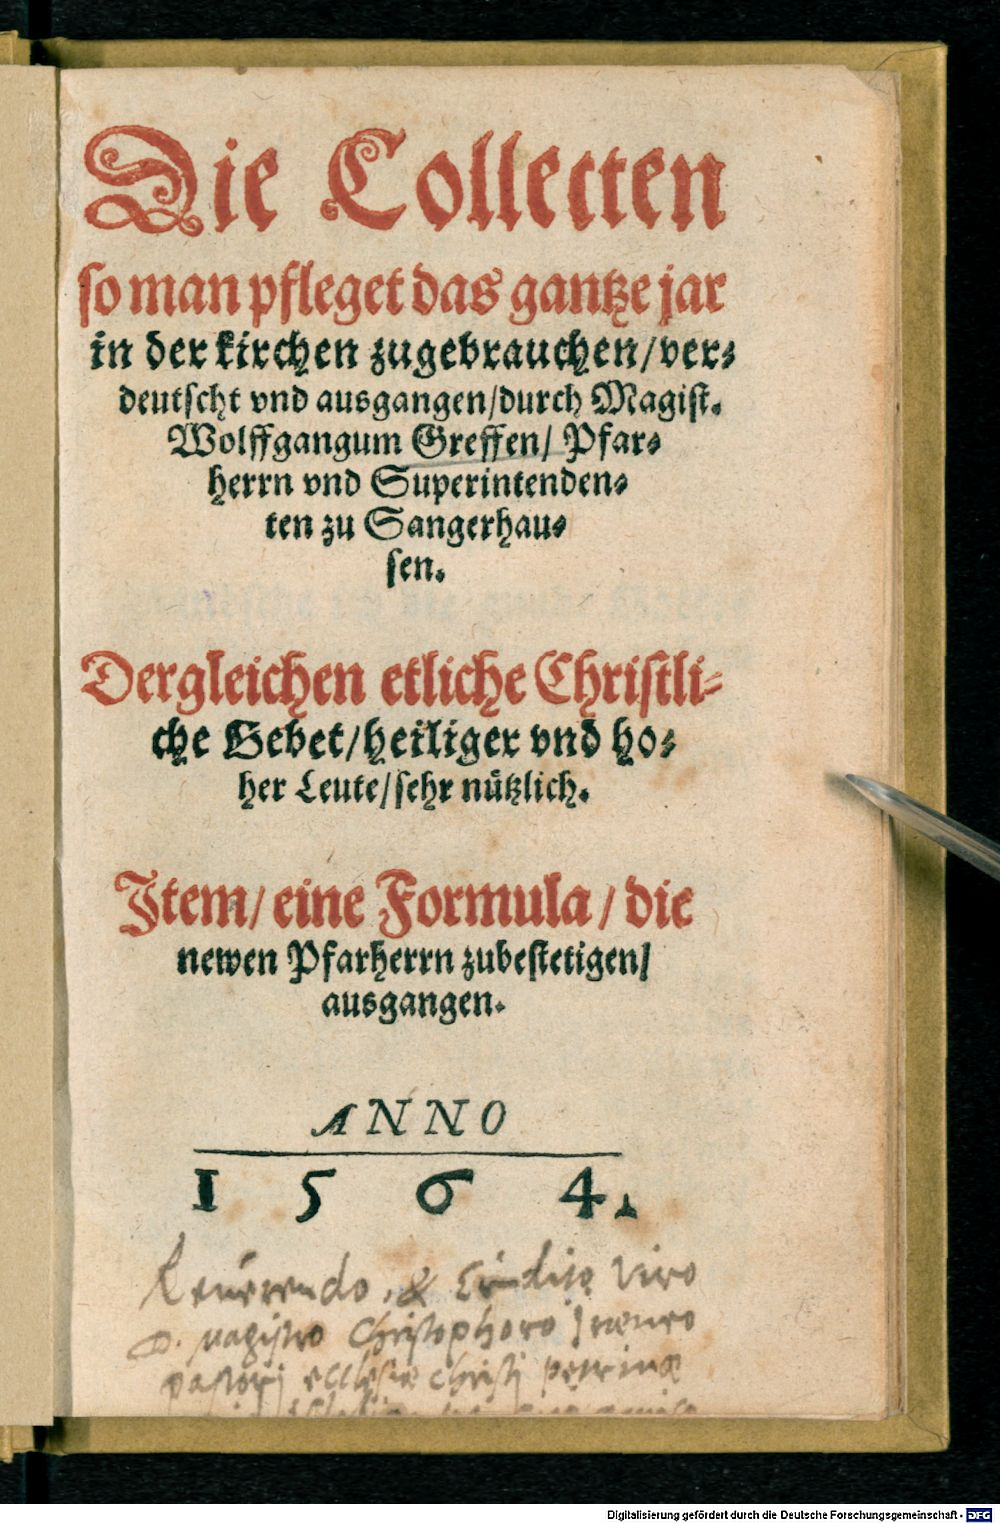 Die Collecten
so man pfleget das gantze jar
in der kirchen zugebrauchen/ver-
deutscht vnd ausgangen/durch Magist.
Wolffgangum Greffen/ Pfar-
herrn vnd Superintenden-
ten zu Sangerhau-
sen.
Dergleichen etliche Christli-
che Gebet/heiliger vnd ho-
her Leute/sehr nützlich.
Item/ eine Formula/ die
newen Pfarherrn zubestetigen/
ausgangen.
ANNO
1564.
Reuerendo, & Erudito Viro
D. Magistro Christophoro Irenaeo
pastori ecclesiae Christi petrinae
Digitalisierung gefördert durch die Deutsche Forschungsgemeinschaft - DFG